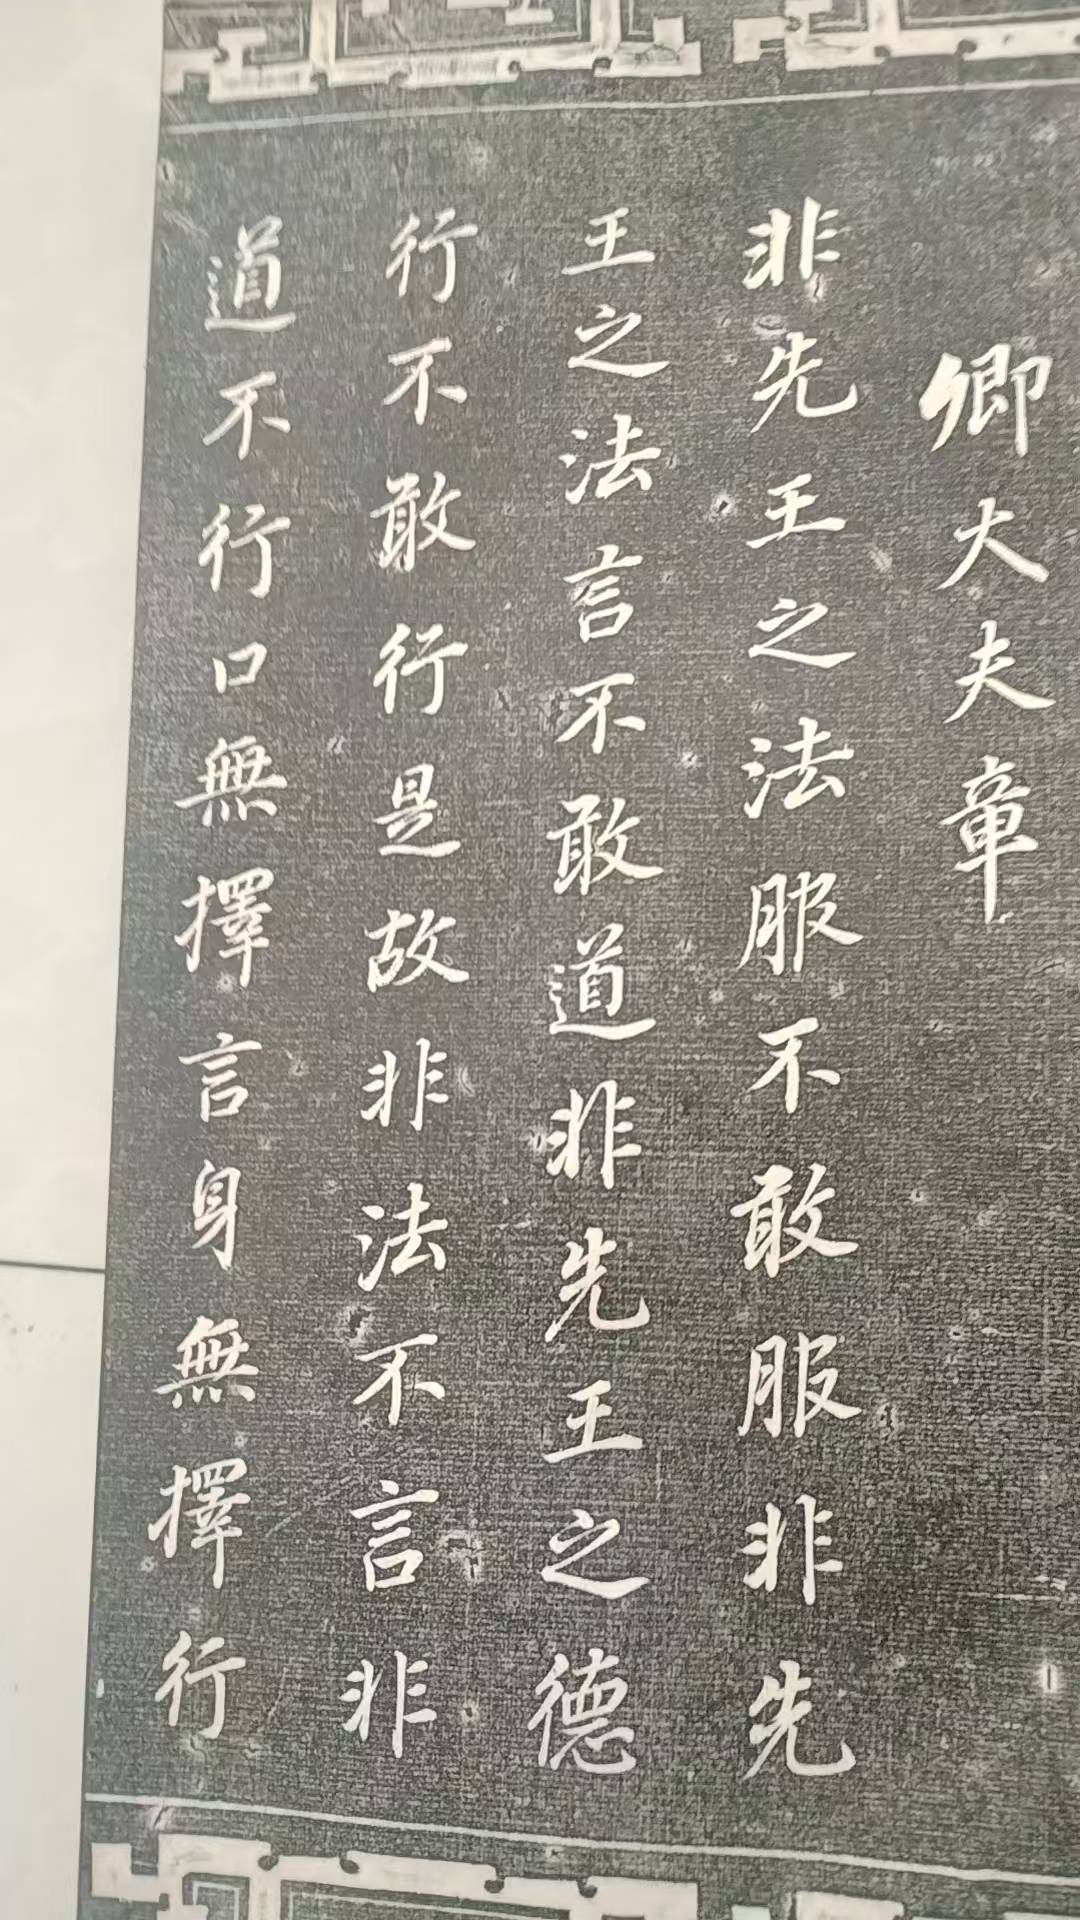 卿大夫章
非先王之法服不敢服非先
王之法言不敢道非先王之德
行不敢行是故非法不言非
道不行口無擇言身無擇行